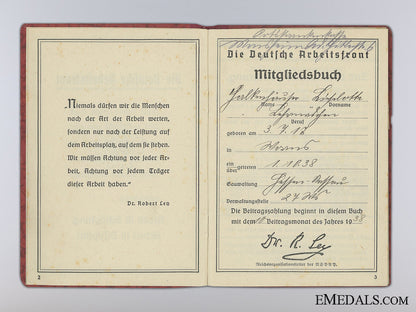 „Niemals dürfen wir die Menschen
nach der Art der Arbeit werten,
sondern nur nach der Leistung auf
dem Arbeitsplatz, auf dem sie stehen.
Wir müssen Achtung vor jeder Ar-
beit, Achtung vor jedem Träger
dieser Arbeit haben.“
Dr. Robert Ley
2
Die Deutsche Arbeitsfront
Mitgliedsbuch
Name Vorname
Beruf
geboren am 3. 7. 18
in Worms
eingetreten 1.10.38
Gauwaltung Hessen-Nassau
Verwaltungsstelle 27
Die Beitragszahlung beginnt in diesem Buch
mit dem 10. Beitragsmonat des Jahres 1938
Dr. R. Ley
Reichsorganisationsleiter der NSDAP.
3
EMEDALS.COM